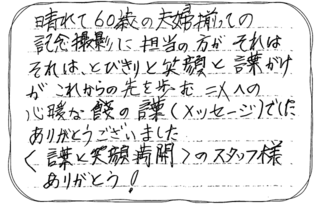 晴れて60歳の夫婦揃っての
記念撮影に担当の方がそれは
それは、とびきりと笑顔と言葉がけ
がこれからの先を歩む二人への
心暖な餞の言葉(メッセージ)でした
ありがとうございました
<言葉と笑顔満開>のスタッフ様
ありがとう!